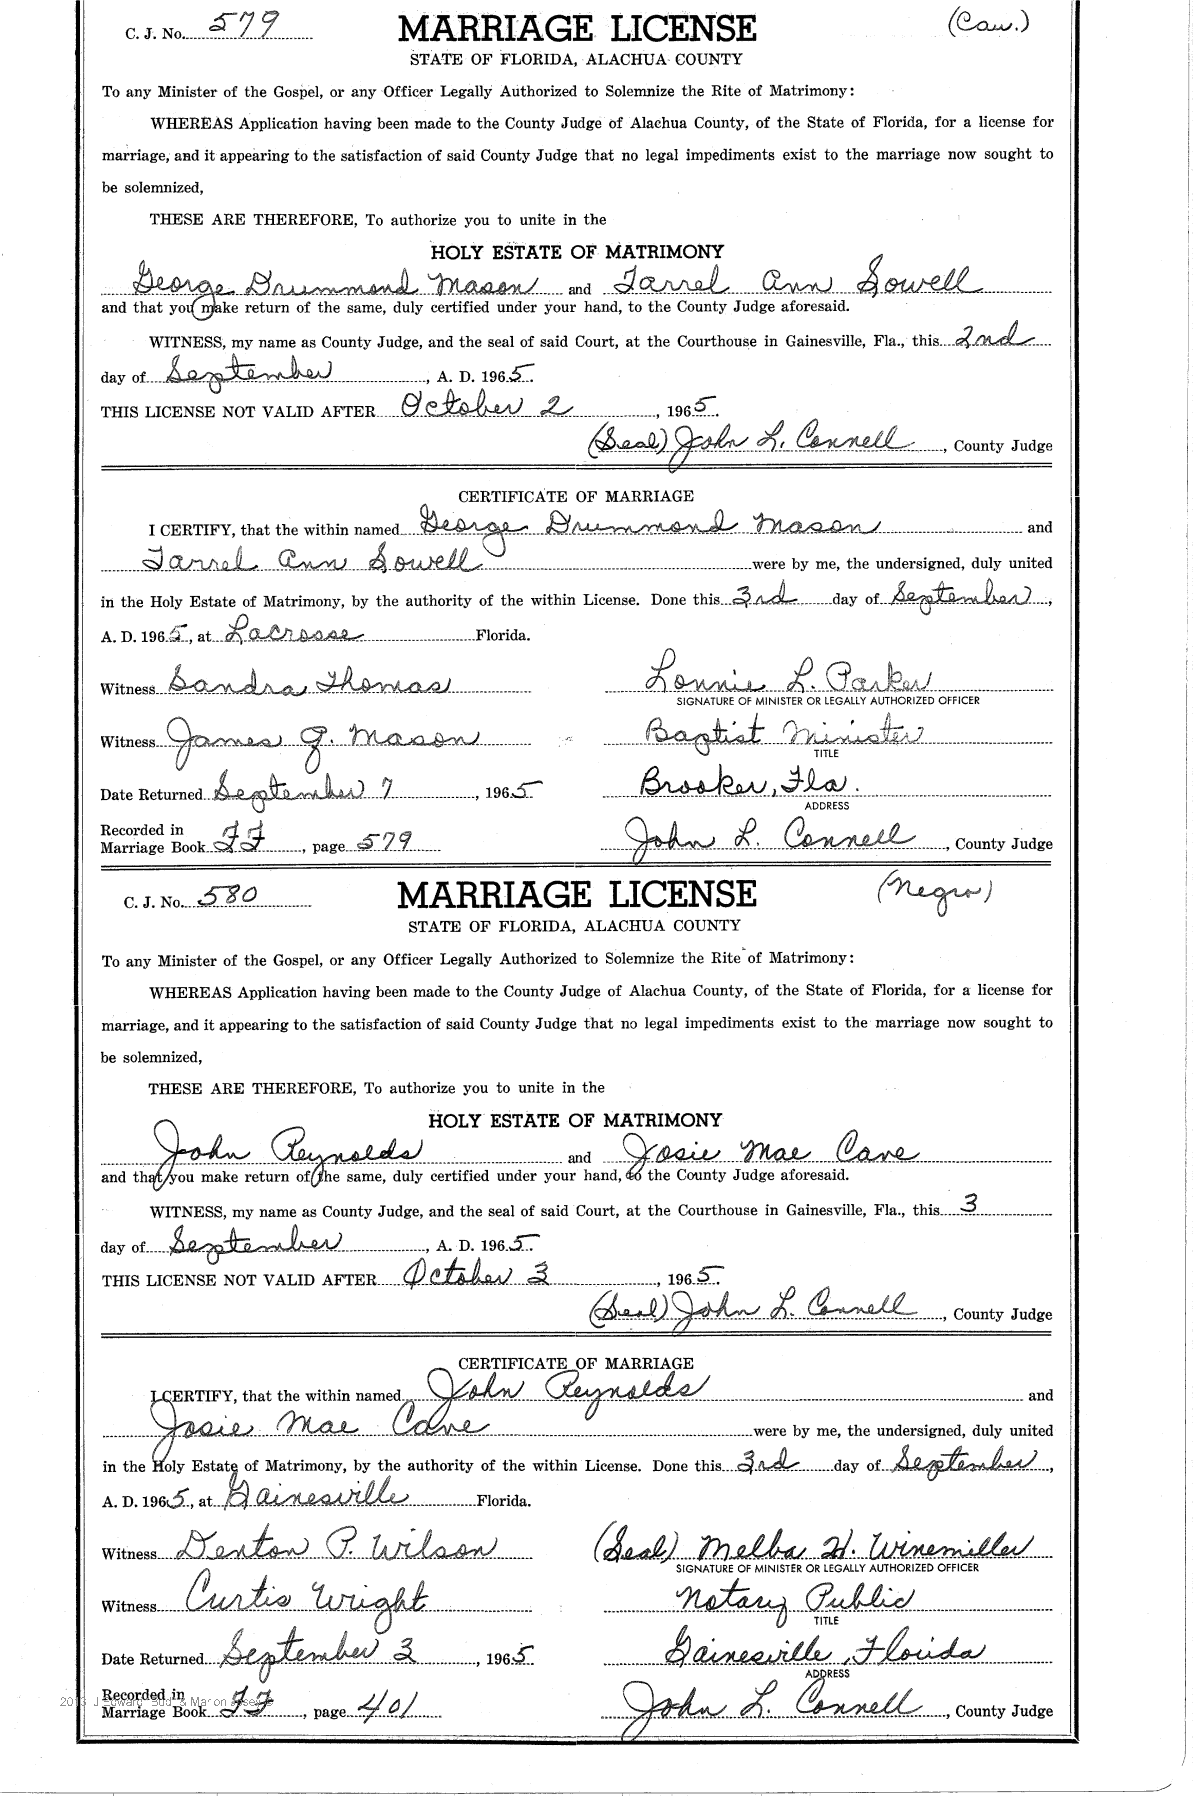 C. J. No. 579 MARRIAGE LICENSE (Cau.)
STATE OF FLORIDA, ALACHUA COUNTY
To any Minister of the Gospel, or any Officer Legally Authorized to Solemnize the Rite of Matrimony:
WHEREAS Application having been made to the County Judge of Alachua County, of the State of Florida, for a license for
marriage, and it appearing to the satisfaction of said County Judge that no legal impediments exist to the marriage now sought to
be solemnized,
THESE ARE THEREFORE, To authorize you to unite in the
HOLY ESTATE OF MATRIMONY
George Drummond Mason and Tarrel Ann Sowell
and that you make return of the same, duly certified under your hand, to the County Judge aforesaid.
WITNESS, my name as County Judge, and the seal of said Court, at the Courthouse in Gainesville, Fla., this 2nd
day of September, A. D. 1965.
THIS LICENSE NOT VALID AFTER October 2, 1965.
(Seal) John L. Connell, County Judge
CERTIFICATE OF MARRIAGE
I CERTIFY, that the within named George Drummond Mason and
Tarrel Ann Sowell were by me, the undersigned, duly united
in the Holy Estate of Matrimony, by the authority of the within License. Done this 3rd day of September,
A. D. 1965, at Lacrosse Florida.
Witness Sandra Thomas Lonnie L. Parker
SIGNATURE OF MINISTER OR LEGALLY AUTHORIZED OFFICER
Witness James G. Mason Baptist Minister
TITLE
Date Returned September 7, 1965 Brooker, Fla.
ADDRESS
Recorded in
Marriage Book FF, page 579 John L. Connell, County Judge
C. J. No. 580 MARRIAGE LICENSE (Negro)
STATE OF FLORIDA, ALACHUA COUNTY
To any Minister of the Gospel, or any Officer Legally Authorized to Solemnize the Rite of Matrimony:
WHEREAS Application having been made to the County Judge of Alachua County, of the State of Florida, for a license for
marriage, and it appearing to the satisfaction of said County Judge that no legal impediments exist to the marriage now sought to
be solemnized,
THESE ARE THEREFORE, To authorize you to unite in the
HOLY ESTATE OF MATRIMONY
John Reynolds and Josie Mae Cave
and that you make return of the same, duly certified under your hand, to the County Judge aforesaid.
WITNESS, my name as County Judge, and the seal of said Court, at the Courthouse in Gainesville, Fla., this 3
day of September, A. D. 1965.
THIS LICENSE NOT VALID AFTER October 3, 1965.
(Seal) John L. Connell, County Judge
CERTIFICATE OF MARRIAGE
I CERTIFY, that the within named John Reynolds and
Josie Mae Cave were by me, the undersigned, duly united
in the Holy Estate of Matrimony, by the authority of the within License. Done this 3rd day of September,
A. D. 1965, at Gainesville Florida.
Witness Denton P. Wilson (Seal) Melba H. Winemiller
SIGNATURE OF MINISTER OR LEGALLY AUTHORIZED OFFICER
Witness Curtis Wright Notary Public
TITLE
Date Returned September 3, 1965 Gainesville, Florida
ADDRESS
Recorded in
Marriage Book FF, page 401 John L. Connell, County Judge